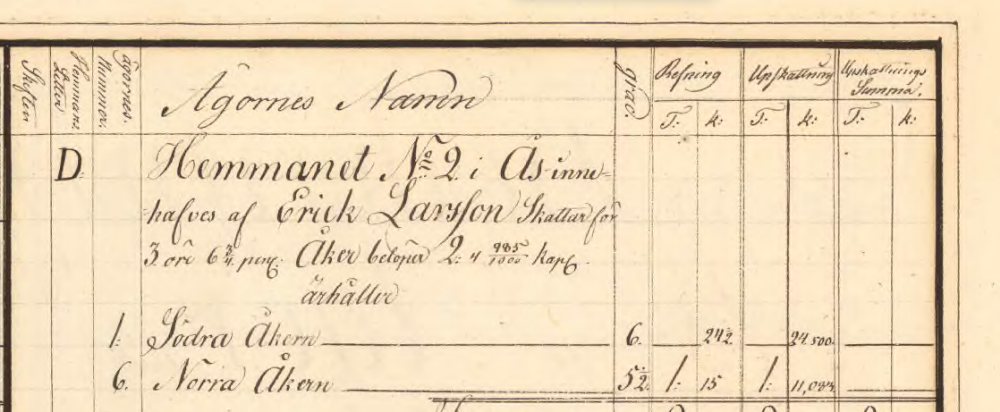 Skiften
Hemmans Littra
Ägornes Nummer.
Ägornes Namn
grad.
Refning
Upskattning
Upskattnings Summa.
T: k: T: k: T: k:
D. Hemmanet N:o 2 i Ås inne-
hafves af Erick Larsson Skattar for
3 öre 6 3/4 peng: Åker beloper 2: 4 985/1000 kap
ärhåller
1. Södra Åkern 6. 24 2. 24.500.
6. Norra Åkern 5 2. 1: 15 1: